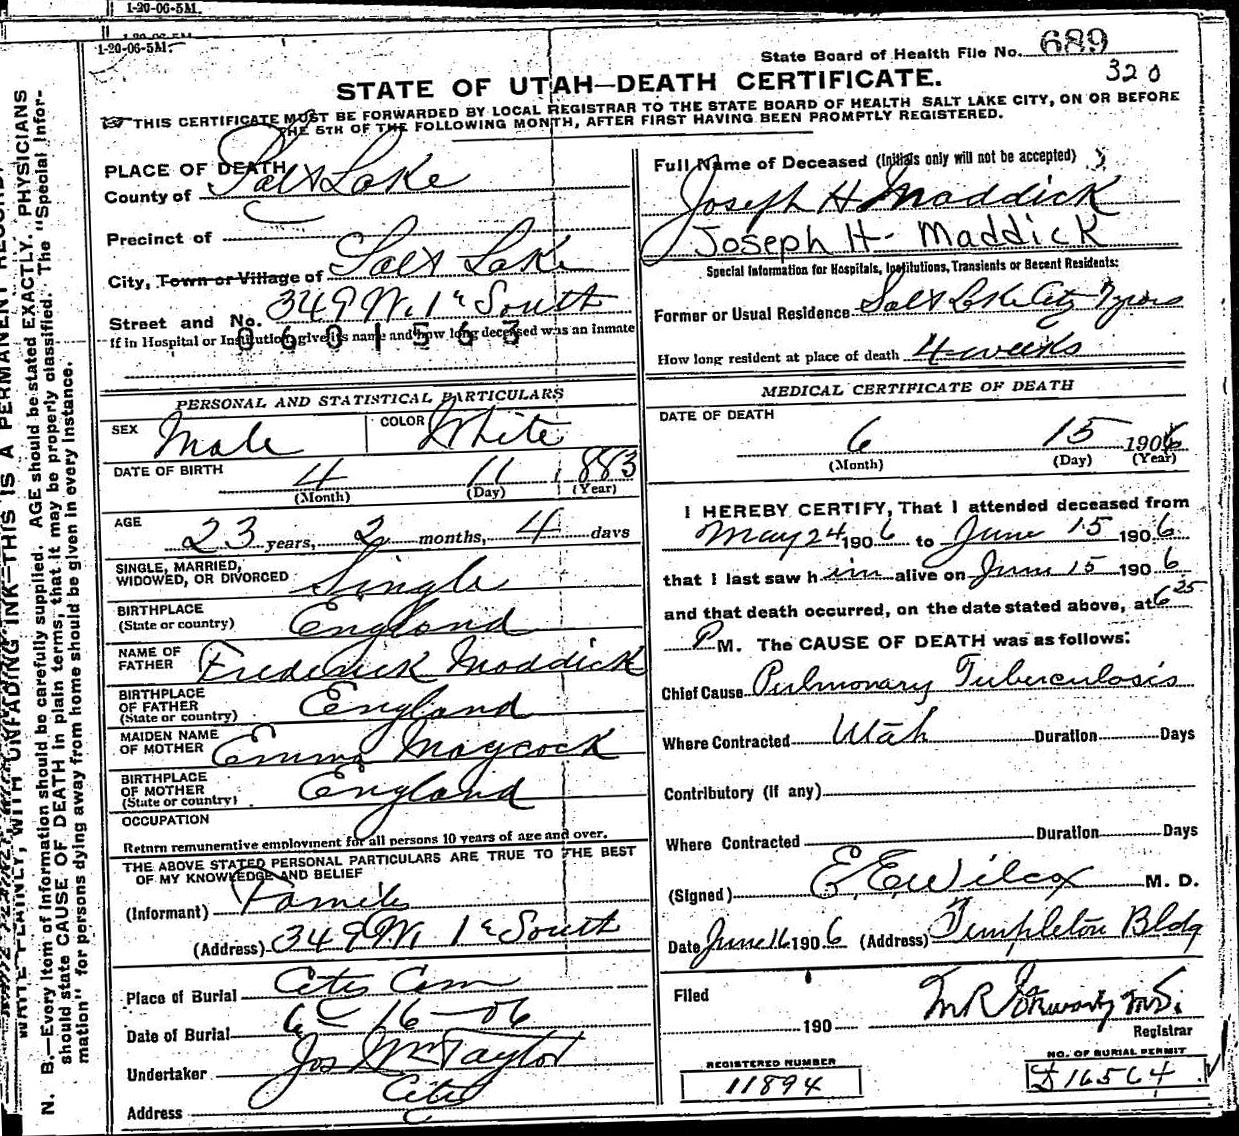 1-20-06-5M.
1-20-06-5M.
State Board of Health File No. 689
320
STATE OF UTAH—DEATH CERTIFICATE.
THIS CERTIFICATE MUST BE FORWARDED BY LOCAL REGISTRAR TO THE STATE BOARD OF HEALTH SALT LAKE CITY, ON OR BEFORE
THE 5TH OF THE FOLLOWING MONTH, AFTER FIRST HAVING BEEN PROMPTLY REGISTERED.
PLACE OF DEATH
County of Salt Lake
Precinct of
City, Town or Village of Salt Lake
Street and No. 349 W. 1st South
If in Hospital or Institution, give its name and how long deceased was an inmate
0601563
PERSONAL AND STATISTICAL PARTICULARS
SEX Male COLOR White
DATE OF BIRTH 4 11 1883
(Month) (Day) (Year)
AGE 23 years, 2 months, 4 days
SINGLE, MARRIED,
WIDOWED, OR DIVORCED Single
BIRTHPLACE
(State or country) England
NAME OF
FATHER Frederick Maddick
BIRTHPLACE
OF FATHER
(State or country) England
MAIDEN NAME
OF MOTHER Emma Maycock
BIRTHPLACE
OF MOTHER
(State or country) England
OCCUPATION
Return remunerative employment for all persons 10 years of age and over.
THE ABOVE STATED PERSONAL PARTICULARS ARE TRUE TO THE BEST
OF MY KNOWLEDGE AND BELIEF
(Informant) Family
(Address) 349 W. 1st South
Place of Burial City Cem
Date of Burial 6-16-06
Undertaker Jos Wm Taylor
Address City
Full Name of Deceased (Initials only will not be accepted)
Joseph H Maddick
Joseph H. Maddick
Special Information for Hospitals, Institutions, Transients or Recent Residents:
Former or Usual Residence Salt Lake City
How long resident at place of death 4 weeks
MEDICAL CERTIFICATE OF DEATH
DATE OF DEATH
6 15 1906
(Month) (Day) (Year)
I HEREBY CERTIFY, That I attended deceased from
May 24 1906 to June 15 1906
that I last saw him alive on June 15 1906
and that death occurred, on the date stated above, at 6 25
P M. The CAUSE OF DEATH was as follows:
Chief Cause Pulmonary Tuberculosis
Where Contracted Utah Duration Days
Contributory (if any)
Where Contracted Duration Days
(Signed) E. E. Wilcox M. D.
Date June 16 1906 (Address) Templeton Bldg
Filed
190
Registrar
REGISTERED NUMBER
11894
NO. OF BURIAL PERMIT
D16564
N. B.—Every item of information should be carefully supplied. AGE should be stated EXACTLY. PHYSICIANS
should state CAUSE OF DEATH in plain terms, that it may be properly classified. The "Special Infor-
mation" for persons dying away from home should be given in every instance.
WRITE PLAINLY, WITH UNFADING INK—THIS IS A PERMANENT RECORD.